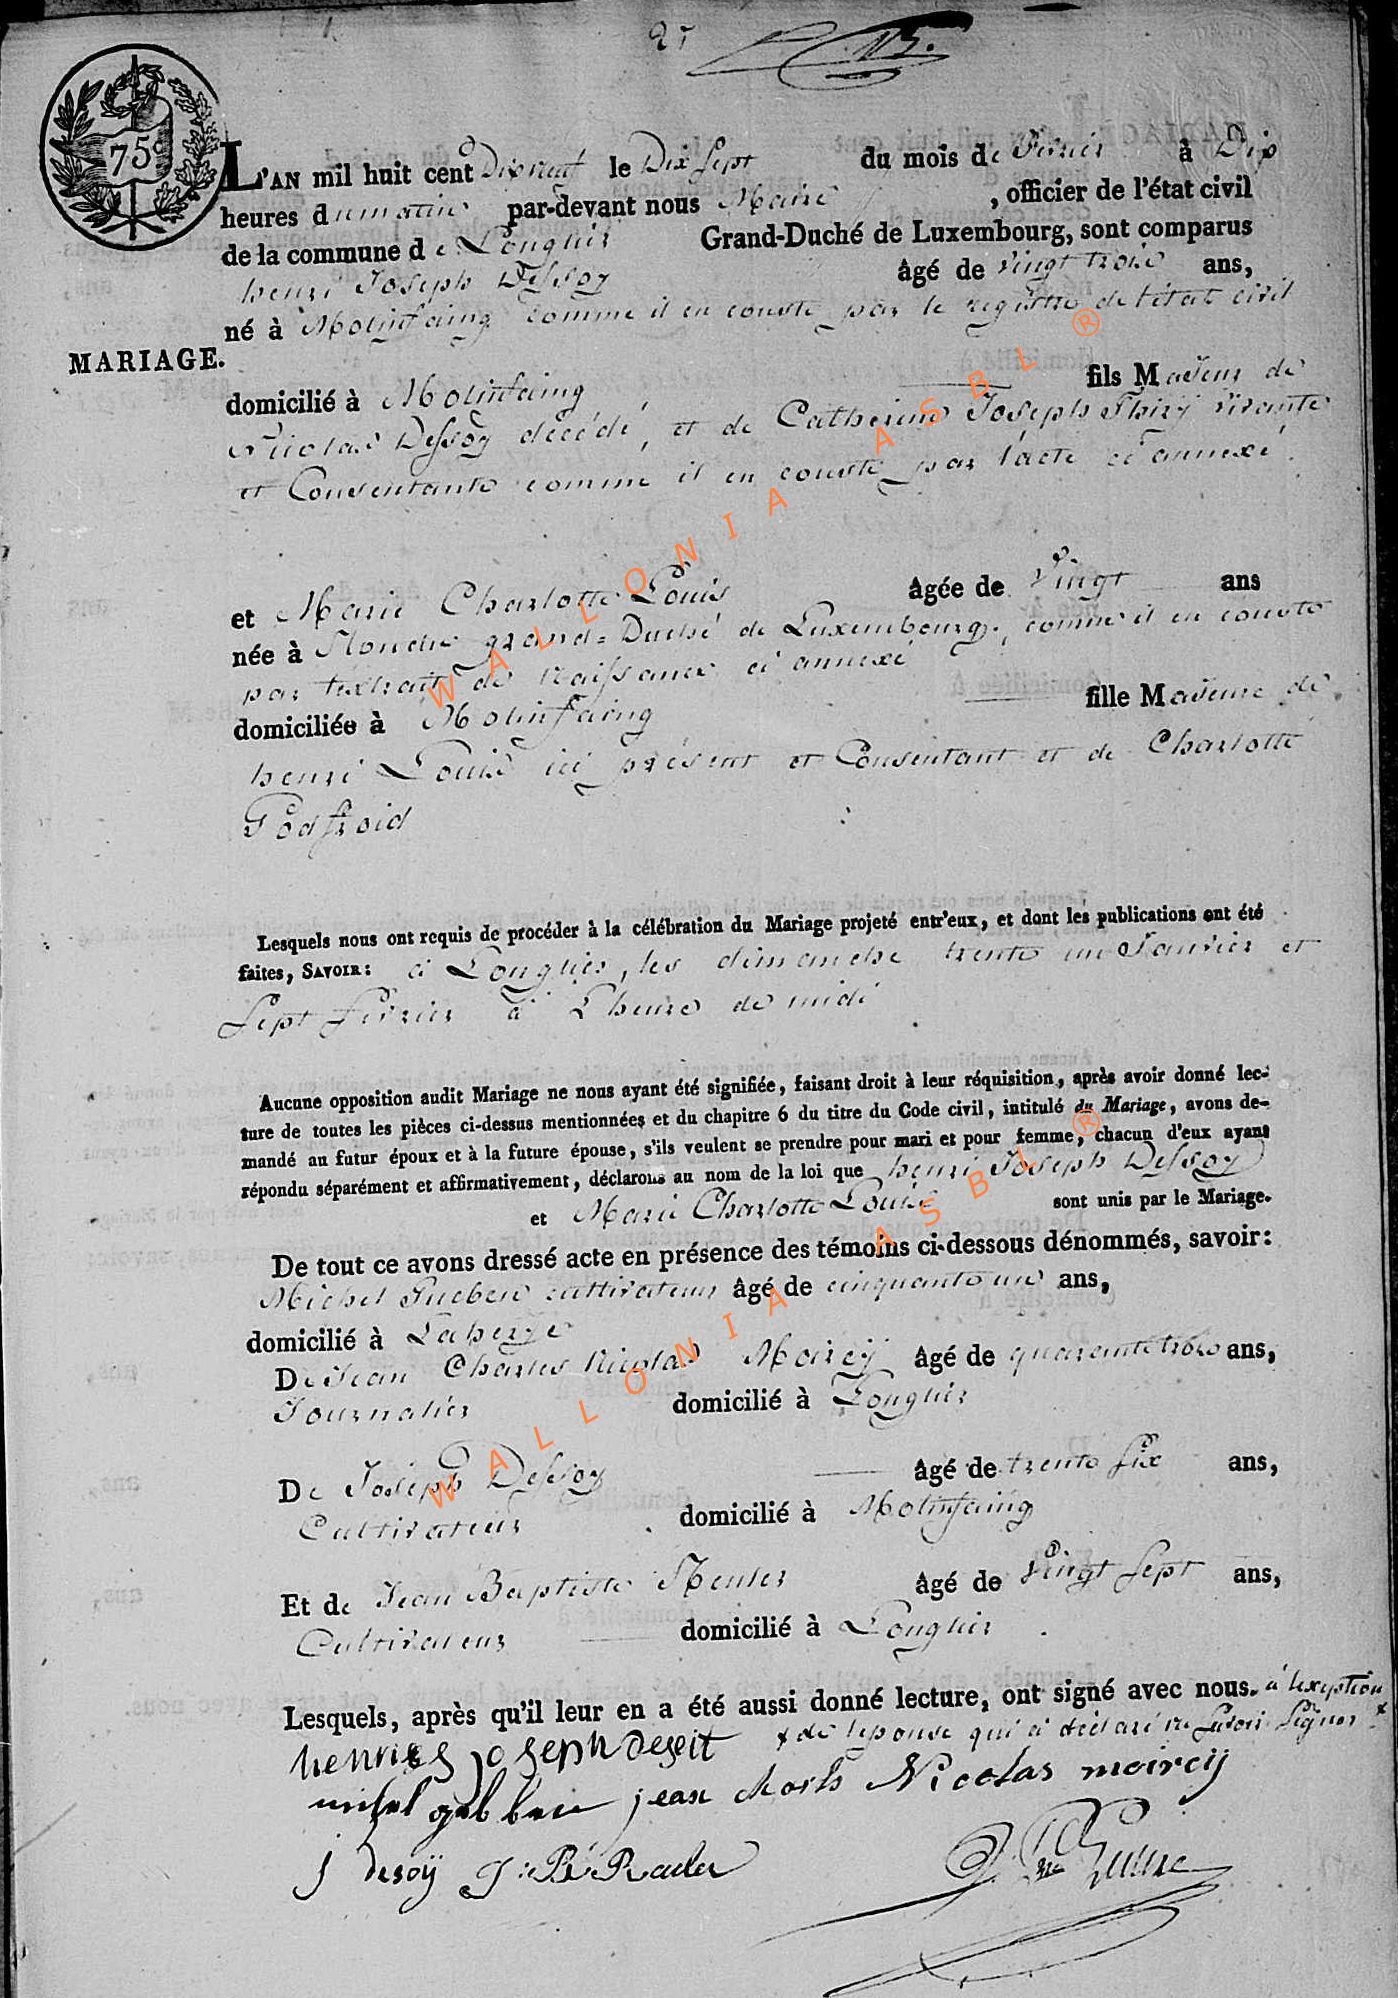 25 N 3.
75 c
L'AN mil huit cent Dixneuf le Dix Sept du mois de Fevrier à Dix
heures du matin par-devant nous Maire, officier de l'état civil
de la commune de Longlier Grand-Duché de Luxembourg, sont comparus
henri Joseph Dessoy âgé de vingt trois ans,
né à Molinfaing comme il en conste par le registre de l'état civil
MARIAGE.
domicilié à Molinfaing fils Majeur de
Nicolas Dessoy décédé, et de Catherine Joseph Thiry vivante
et Consentante comme il en conste par l'acte ci annexé.
et Marie Charlotte Louis Agée de Vingt ans
née à grand=Duché de Luxembourg, comme il en conste
par l'extrait de naissance ci annexé
domiciliée à Molinfaing fille Majeure de
henri Louis ici présent et Consentant et de Charlotte
Godfroid
Lesquels nous ont requis de procéder à la célébration du Mariage projeté entr'eux, et dont les publications ont été
faites, SAVOIR: à Longlier, les dimanche trente un Janvier et
Sept fevrier à L'heure de midi
Aucune opposition audit Mariage ne nous ayant été signifiée, faisant droit à leur réquisition, après avoir donné lec-
ture de toutes les pièces ci-dessus mentionnées et du chapitre 6 du titre du Code civil, intitulé du Mariage, avons de-
mandé au futur époux et à la future épouse, s'ils veulent se prendre pour mari et pour femme, chacun d'eux ayant
répondu séparément et affirmativement, déclarons au nom de la loi que henri Joseph Dessoy
et Marie Charlotte Louis sont unis par le Mariage.
De tout ce avons dressé acte en présence des témoins ci-dessous dénommés, savoir:
Michel Gueben cultivateur âgé de cinquante un ans,
domicilié à Laherie
De Jean Charles Nicolas Moircy âgé de quarante trois ans,
Journalier domicilié à Longlier
De Joseph Dessoy âgé de trente Six ans,
Cultivateur domicilié à Molinfaing
Et de Jean Baptiste âgé de Vingt Sept ans,
Cultivateur domicilié à Longlier
Lesquels, après qu'il leur en a été aussi donné lecture, ont signé avec nous. à l'exeption
x de l'epouse qui a déclaré ne Savoir Signer x
henrij joseph deseit
michel gubben jean charls Nicolas moircij
j desoÿ J: B
WALLONIA ASBL ®
WALLONIA ASBL ®